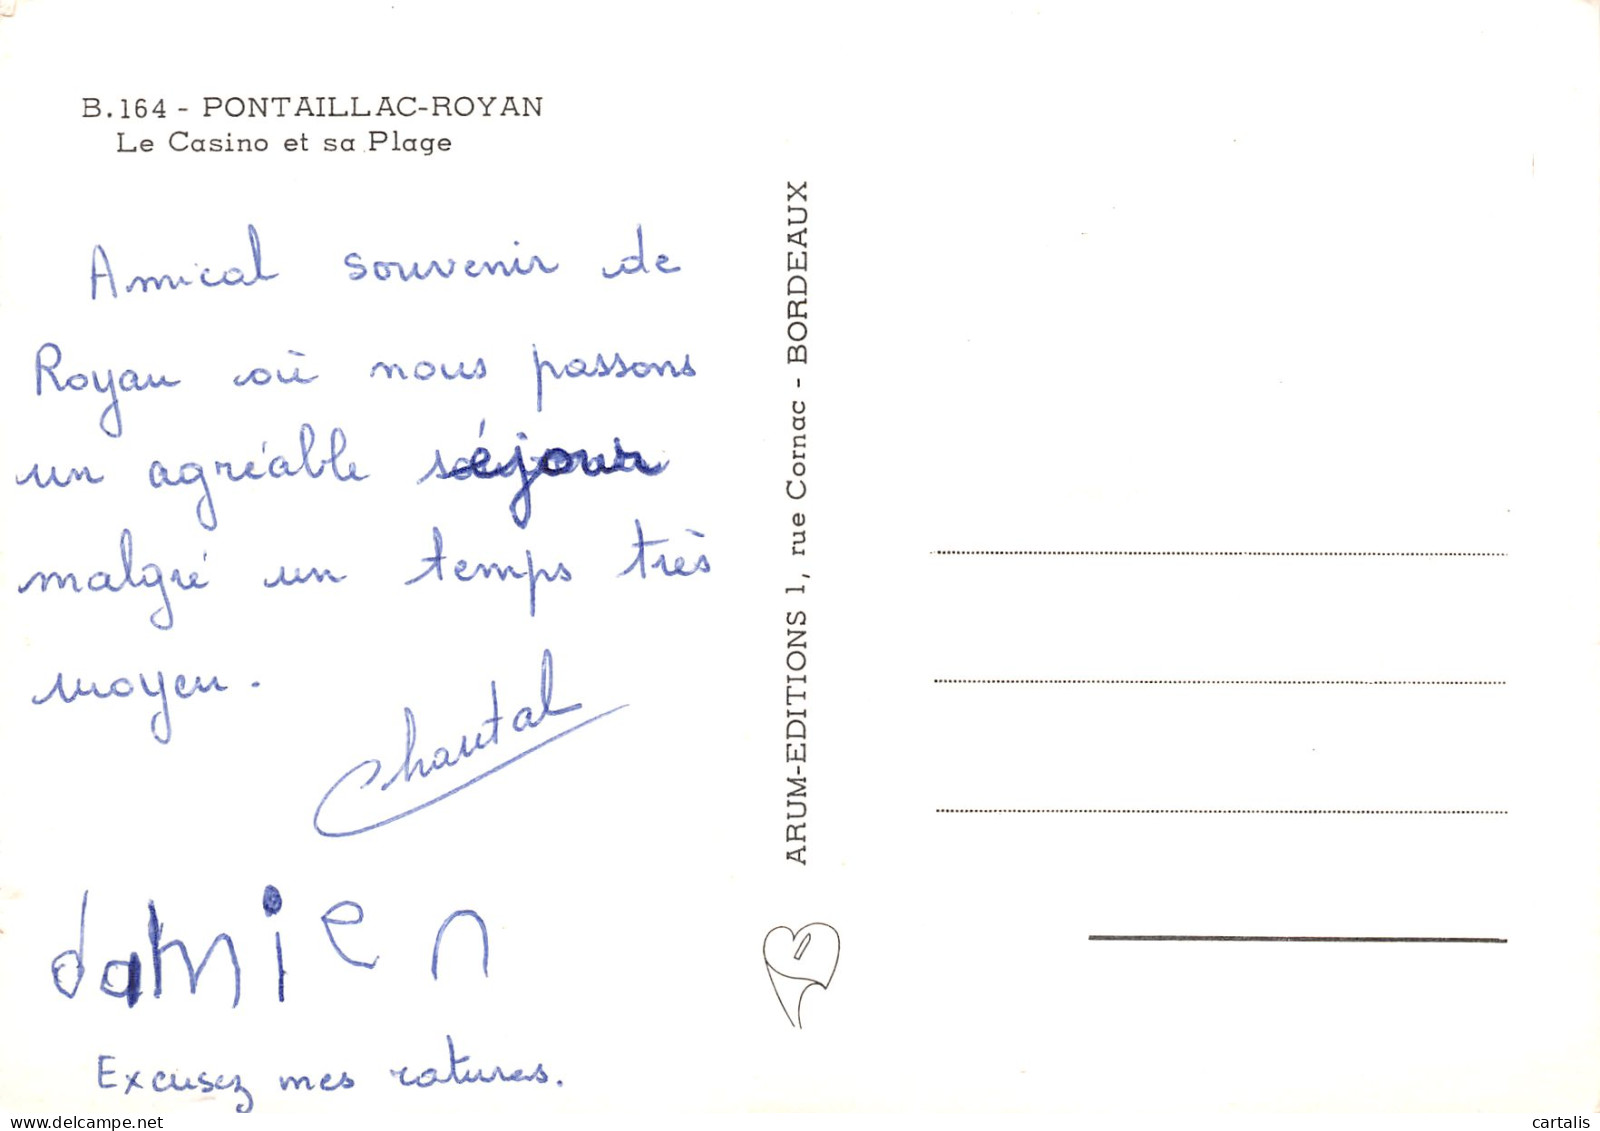 B.164 - PONTAILLAC-ROYAN
Le Casino et sa Plage
Amical souvenir de
Royan où nous passons
un agréable séjour
malgré un temps très
moyen.
Chantal
damien
Excusez mes ratures.
ARUM-EDITIONS 1, rue Cornac - BORDEAUX
delcampe.net
cartalis